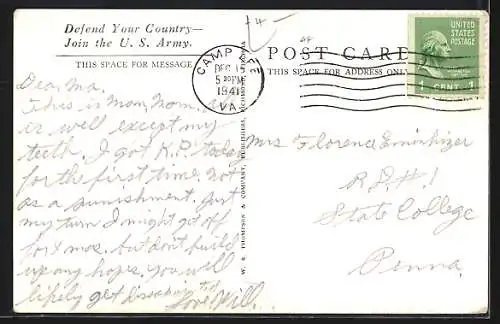 Defend Your Country—
Join the U. S. Army.
THIS SPACE FOR MESSAGE
POST CARD
THIS SPACE FOR ADDRESS ONLY
CAMP LEE
DEC 15
5 PM
1941
VA.
UNITED STATES POSTAGE
1 CENT 1
W. R. THOMPSON & COMPANY, PUBLISHERS, RICHMOND, VIRGINIA
Dear Ma.
This is Mon, Morn. all
is well except my
teeth. I got K.P. today
for the first time. Not
as a punishment. Just
my turn I might get off
for Xmas. but don't build
up any hopes. You will
likely get disappointed
Love Will.
Mrs Florence
R.D.#1
State College
Penna.